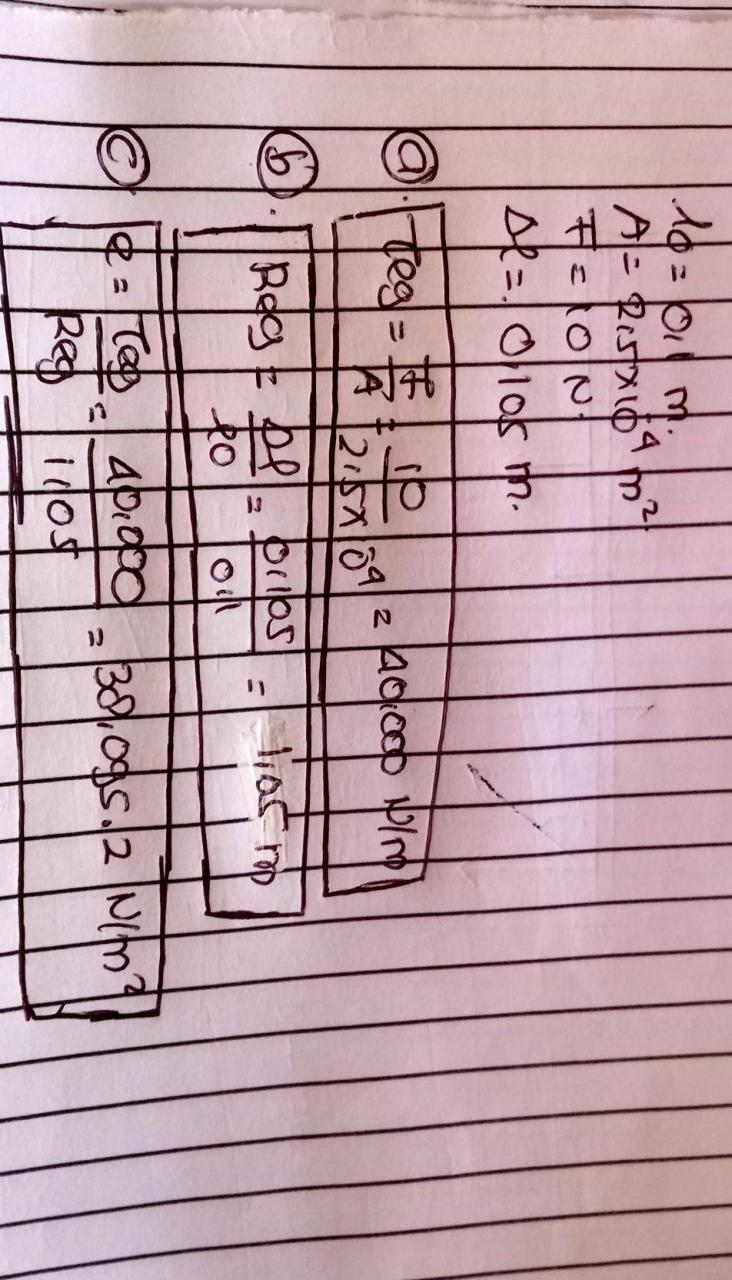 l0 = 0,1 m.
A = 2,5x10⁻⁴ m²
F = 10 N.
Δl = 0,105 m.
a. Teg = F/A = 10/2,5x10⁻⁴ = 40,000 N/m
b. Reg = Δl/l0 = 0,105/0,1 = 1,05 m
c. e = Teg/Reg = 40,000/1,05 = 38,095.2 N/m²